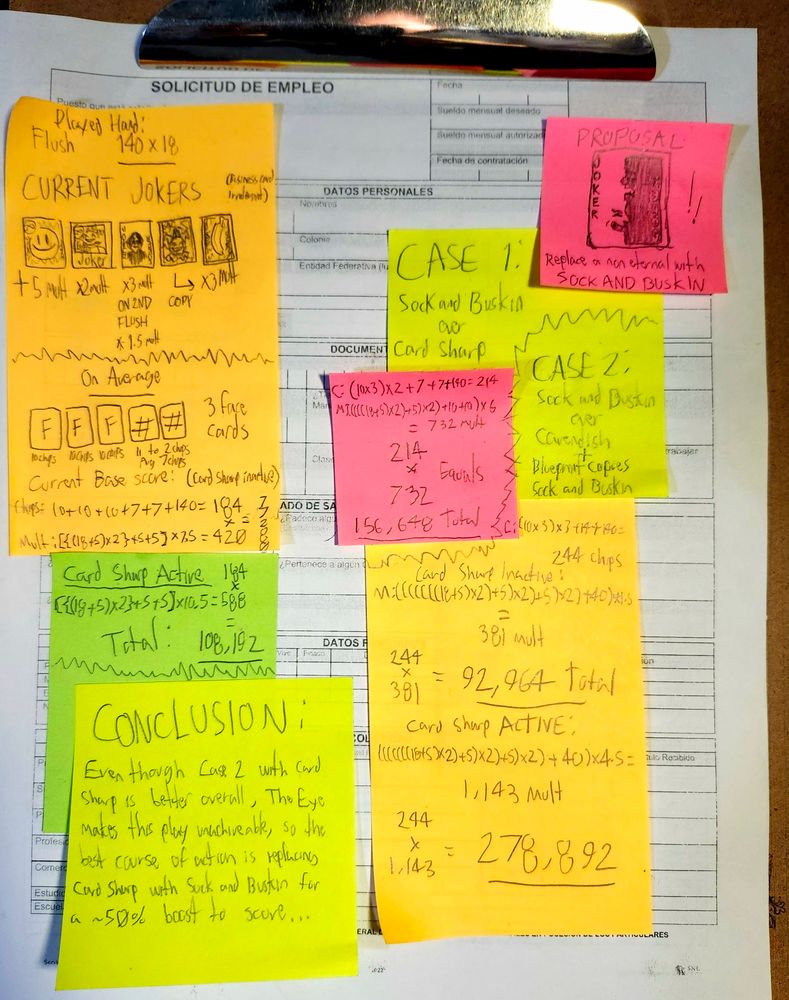 SOLICITUD DE EMPLEO
Fecha
Sueldo mensual deseado
Sueldo mensual autorizado
Fecha de contratación
DATOS PERSONALES
Nombres
Colonia
Entidad Federativa
Played Hand:
Flush 140 x 18
CURRENT JOKERS (Business Card
irrelevant)
Joker
+5 mult x2 mult x3 mult ↳ x3 mult
ON 2ND COPY
FLUSH
x1.5 mult
On Average
F F F # #
3 face
cards
10chips 10chips 10chips 11 to 2 chips
Avg 7chips
Current Base score: (Card Sharp inactive)
Chips: 10+10+10+7+7+140= 184
x =
Mult: [{(18+5)x2}+5+5]x7.5=420
Card Sharp Active 184
x
[{(18+5)x2}+5+5]x10.5=588
=
Total: 108,192
CONCLUSION:
Even though Case 2 with Card
Sharp is better overall, The Eye
makes this play unachievable, so the
best course of action is replacing
Card Sharp with Sock and Buskin for
a ~50% boost to score...
PROPOSAL:
JOKER
!!
Replace a non eternal with
SOCK AND BUSKIN
CASE 1:
Sock and Buskin
over
Card Sharp
C: (10x3)x2+7+7+140=214
= 732 mult
214
x Equals
732
156,648 Total
CASE 2:
Sock and Buskin
over
Cavendish
+
Blueprint Copies
Sock and Buskin
C: (10x3)x3+14+140=
244 chips
Card Sharp Inactive:
=
381 mult
244
x = 92,964 Total
381
Card Sharp ACTIVE:
((((((18+5)x2)+5)x2)+5)x2)+40)x4.5=
1,143 mult
244
x = 278,892
1,143